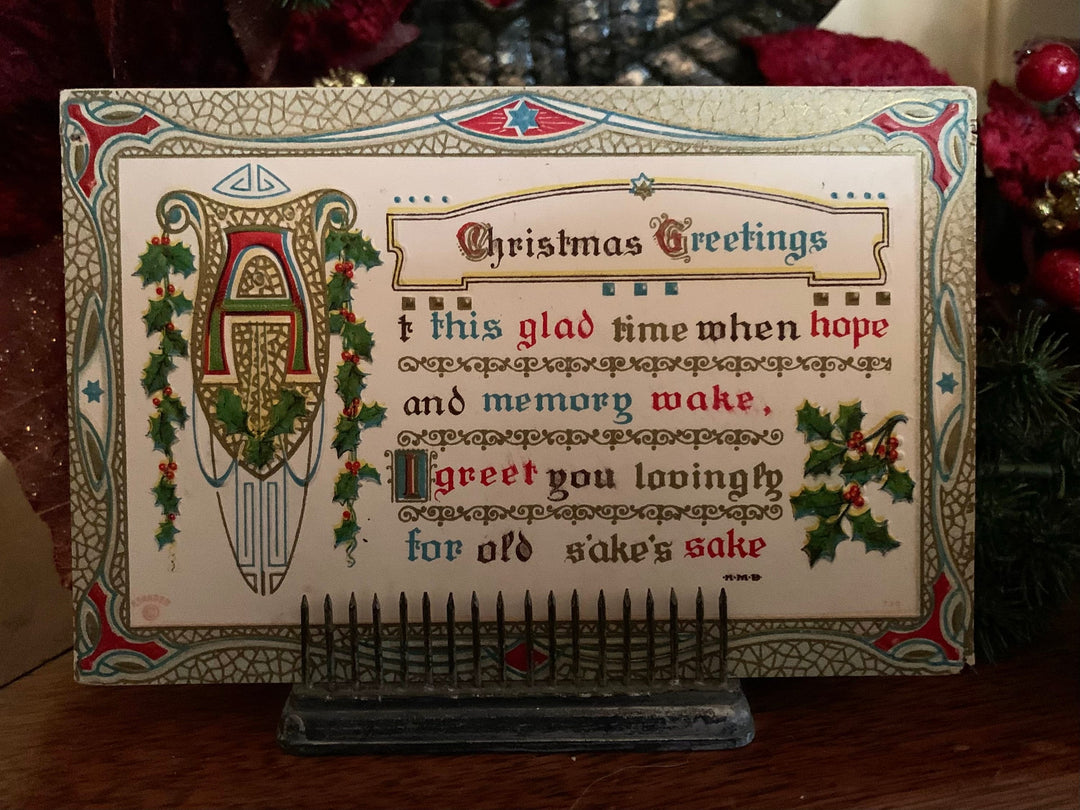 Christmas Greetings
At this glad time when hope
and memory wake,
I greet you lovingly
for old s'ake's sake
H.M.B